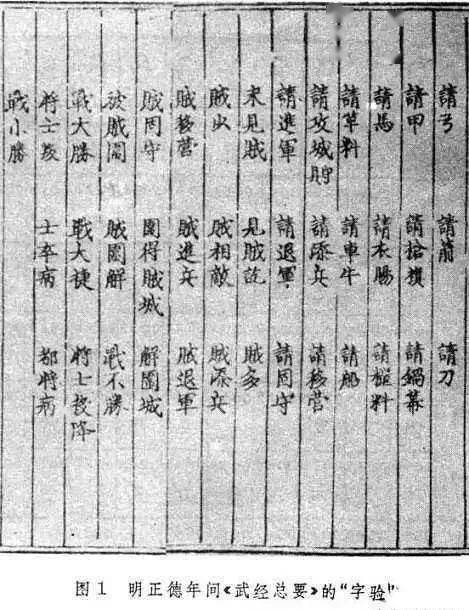 請弓 請箭 請刀
請甲 請槍旗 請鍋幕
請馬 請衣賜 請糧料
請草料 請車牛 請船
請攻城 請添兵 請移營
請進軍 請退軍 請固守
未見賊 見賊訖 賊多
賊少 賊相敵 賊添兵
賊移營 賊進兵 賊退軍
賊固守 圍得賊城 解圍城
被賊圍 賊圍解 戰不勝
戰大勝 戰大捷 將士投降
將士叛 士卒病 都將病
戰小勝
图1 明正德年间《武经总要》的“字验”